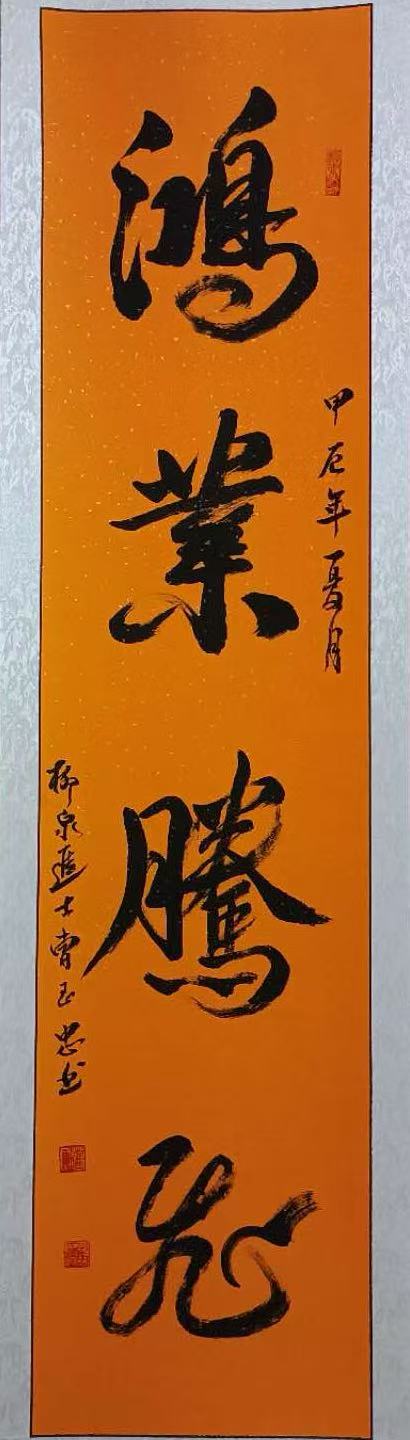 鴻業騰飛
甲辰年夏月
柳泉進士曹玉忠书